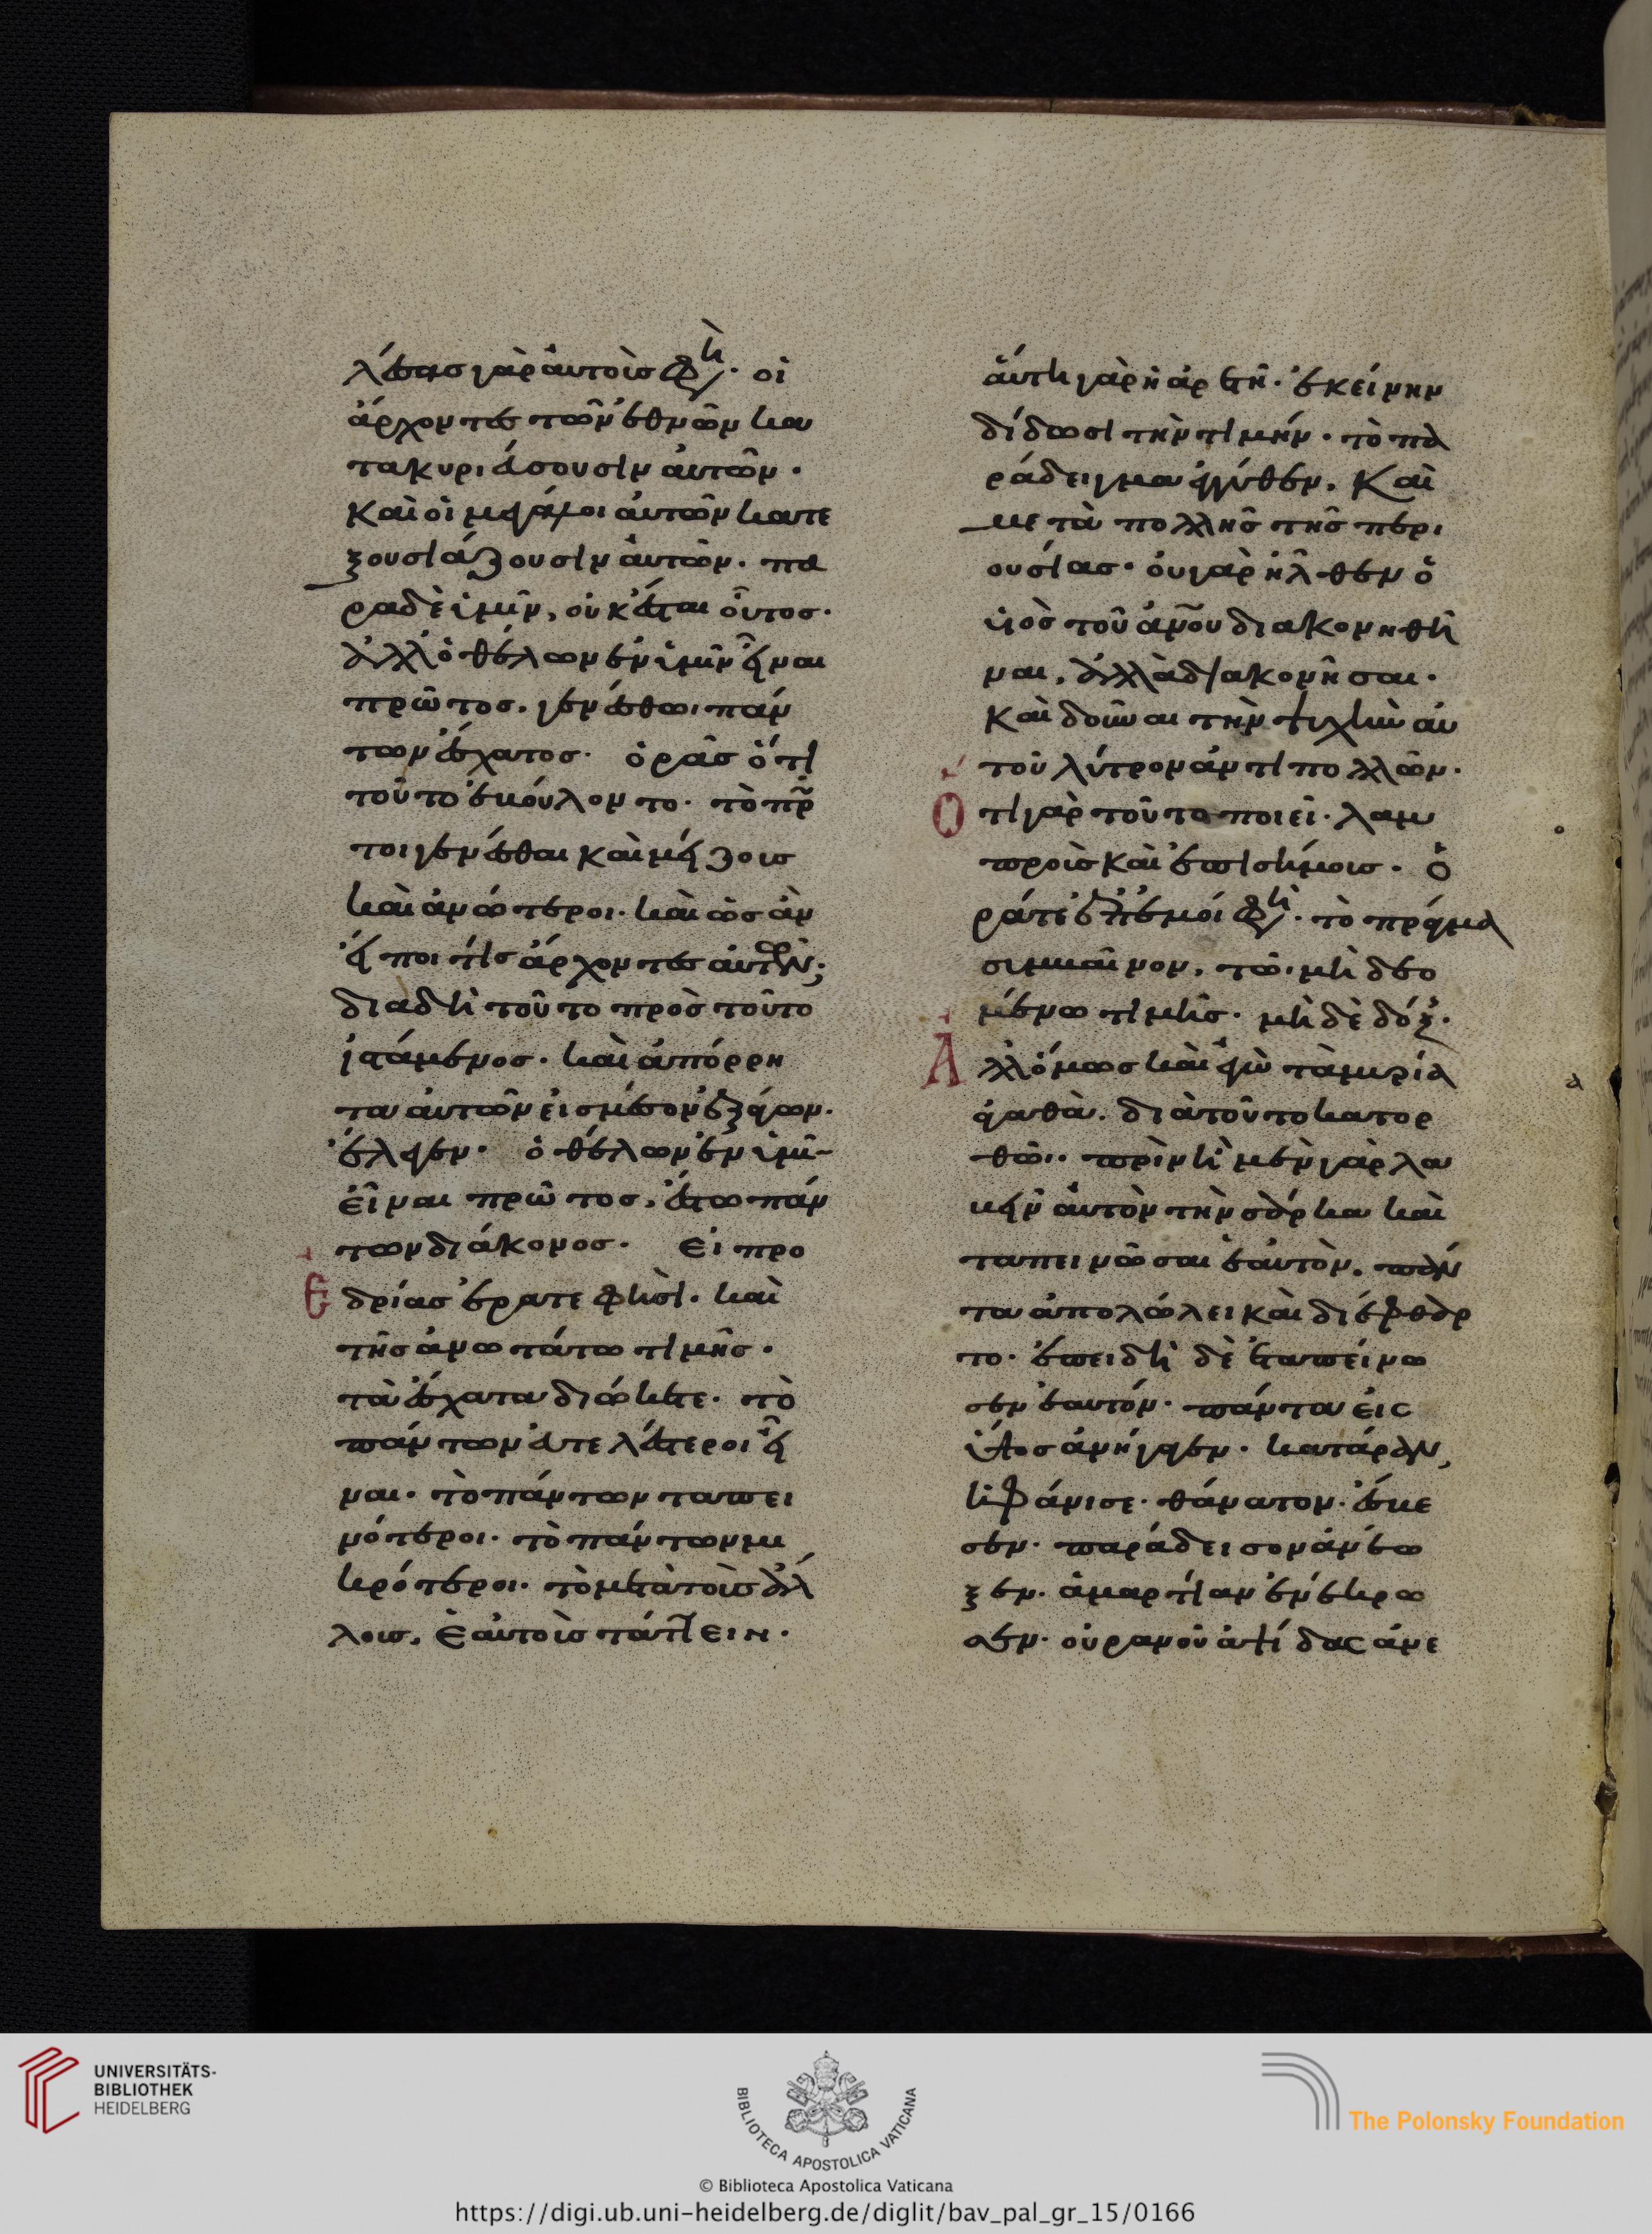 λέσας γὰρ αὐτοὺς φη· οἱ
ἄρχοντες τῶν ἐθνῶν κα
τακυριεύσουσιν αὐτῶν·
καὶ οἱ μεγάλοι αὐτῶν κατε
ξουσιάζουσιν αὐτῶν· πα
ρα δὲ ὑμῖν, οὐκ ἔσται οὕτως·
ἀλλ' ὁ θέλων ἐν ὑμῖν εἶναι
πρῶτος. γενέσθω πάν
των ἔσχατος· ὁρᾶς ὅτι
τοῦτο ἐβούλοντο· τὸ πρῶ
τοι γενέσθαι καὶ μείζους
καὶ ἀνώτεροι· καὶ ὡς ἂν
εἴποι τίς ἄρχοντες αὐτῶν;
διὰ δὴ τοῦτο πρὸς τοῦτο
ἱστάμενος· καὶ ἀπόρρη
τα αὐτῶν εἰς μέσον ἐξάγων·
ἔλεγεν· ὁ θέλων ἐν ὑμῖ
εἶναι πρῶτος, ἔστω πάν
των διάκονος· εἰ προ
Εδρίας ἐρᾶτε φησὶ· καὶ
τῆς ἀνωτάτω τιμῆς·
τὰ ἔσχατα διώκετε· τὸ
πάντων εὐτελέστεροι εἶ
ναι· τὸ πάντων ταπει
νότεροι· τὸ πάντων μι
κρότεροι· τὸ μετὰ τοὺς ἄλ
λους, ἑαυτοὺς τάττειν·
αὕτη γὰρ ἡ ἀρετὴ· ἐκείνην
δίδωσι τὴν τιμήν· τὸ πα
ράδειγμα ἐγγύθεν. καὶ
μετὰ πολλῆς τῆς περι
ουσίας· οὐ γὰρ ἦλθεν ὁ
υἱὸς τοῦ ἀνου διακονηθῆ
ναι, ἀλλὰ διακονῆσαι·
καὶ δοῦναι τὴν ψυχὴν αὐ
τοῦ λύτρον ἀντὶ πολλῶν·
Ὅτι γὰρ τοῦτο ποιεῖ· λαμ
προὺς καὶ ἐπισήμους· ὁ
ρᾶτε ἐπ' ἐμοί φη· τὸ πρᾶγμα
συμβαῖνον, τῶ μὴ δεο
μένω τιμῆς· μὴ δὲ δόξ·
Ἀλλ' ὅμως καὶ ἐγὼ τὰ μυρία
ἀγαθὰ· διὰ τοῦτο κατορ
θῶ· πρὶν ἢ μὲν γὰρ λα
βεῖν αὐτὸν τὴν σάρκα καὶ
ταπεινῶσαι ἑαυτὸν, πάν
τα ἀπολώλει καὶ διέφθαρ
το· ἐπειδὴ δὲ ἐταπείνω
σεν ἑαυτόν· πάντα εἰς
ὕψος ἀνήγαγεν· κατάραν,
ἠφάνισε· θάνατον· ἔσβε
σεν· παράδεισον ἀνέω
ξεν· ἁμαρτίαν ἐνέκρω
σεν· οὐρανοῦ ἁψίδας ἀνε
UNIVERSITÄTS-
BIBLIOTHEK
HEIDELBERG
BIBLIOTECA APOSTOLICA VATICANA
The Polonsky Foundation
© Biblioteca Apostolica Vaticana
https://digi.ub.uni-heidelberg.de/diglit/bav_pal_gr_15/0166